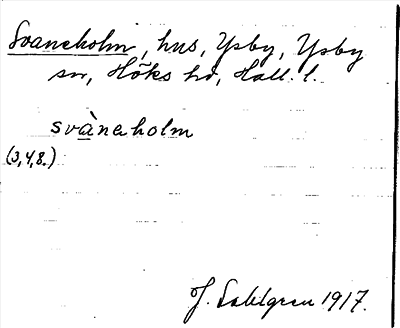 Svaneholm, hus, Ysby, Ysby
sn, Höks hd, Hall. l.
svàneholm
(3,4,8.)
J. Sahlgren 1917.